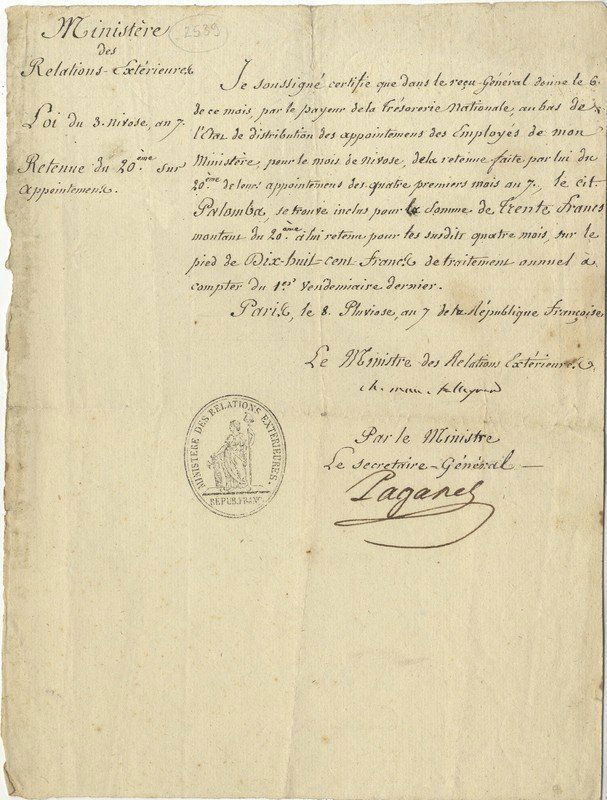 Ministère
2539
des
Relations-Extérieures
Loi du 3. nivose, an 7.
Retenue du 20.ème sur
appointemens.
Je soussigné certifie que dans le reçu-Général donné le 6.
de ce mois, par le payeur de la Trésorerie Nationale, au bas de
l'Etat de distribution des appointemens des Employés de mon
Ministère, pour le mois de nivose, de la retenue faite par lui du
20.ème de leurs appointemens des quatre premiers mois an 7., le cit.
Palomba, se trouve inclus pour la Somme de Trente Francs
montant du 20.ème à lui retenu pour les susdits quatre mois, sur le
pied de Dix-huit-cent Francs de traitement annuel à
compter du 1.er Vendemiaire dernier.
Paris, le 8. Pluviose, an 7 de la République Françoise
Le Ministre des Relations Extérieures,
ch. mau. talleyrand
Par le Ministre
Le secretaire-Général
Paganel
MINISTERE DES RELATIONS EXTERIEURES.
REPUB. FRANC.